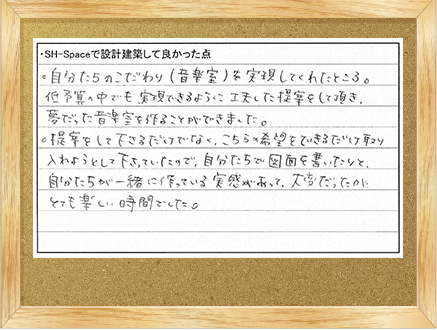 ・SH-Spaceで設計建築して良かった点
○自分たちのこだわり(音楽室)を実現してくれたところ。
低予算の中でも実現できるように工夫した提案をして頂き、
夢だった音楽室を作ることができました。
○提案をして下さるだけでなく、こちらの希望をできるだけ取り
入れようとして下さっていたので、自分たちで図面を書いたりと、
自分たちが一緒に作っている実感があって、大変だったけど
とても楽しい時間でした。